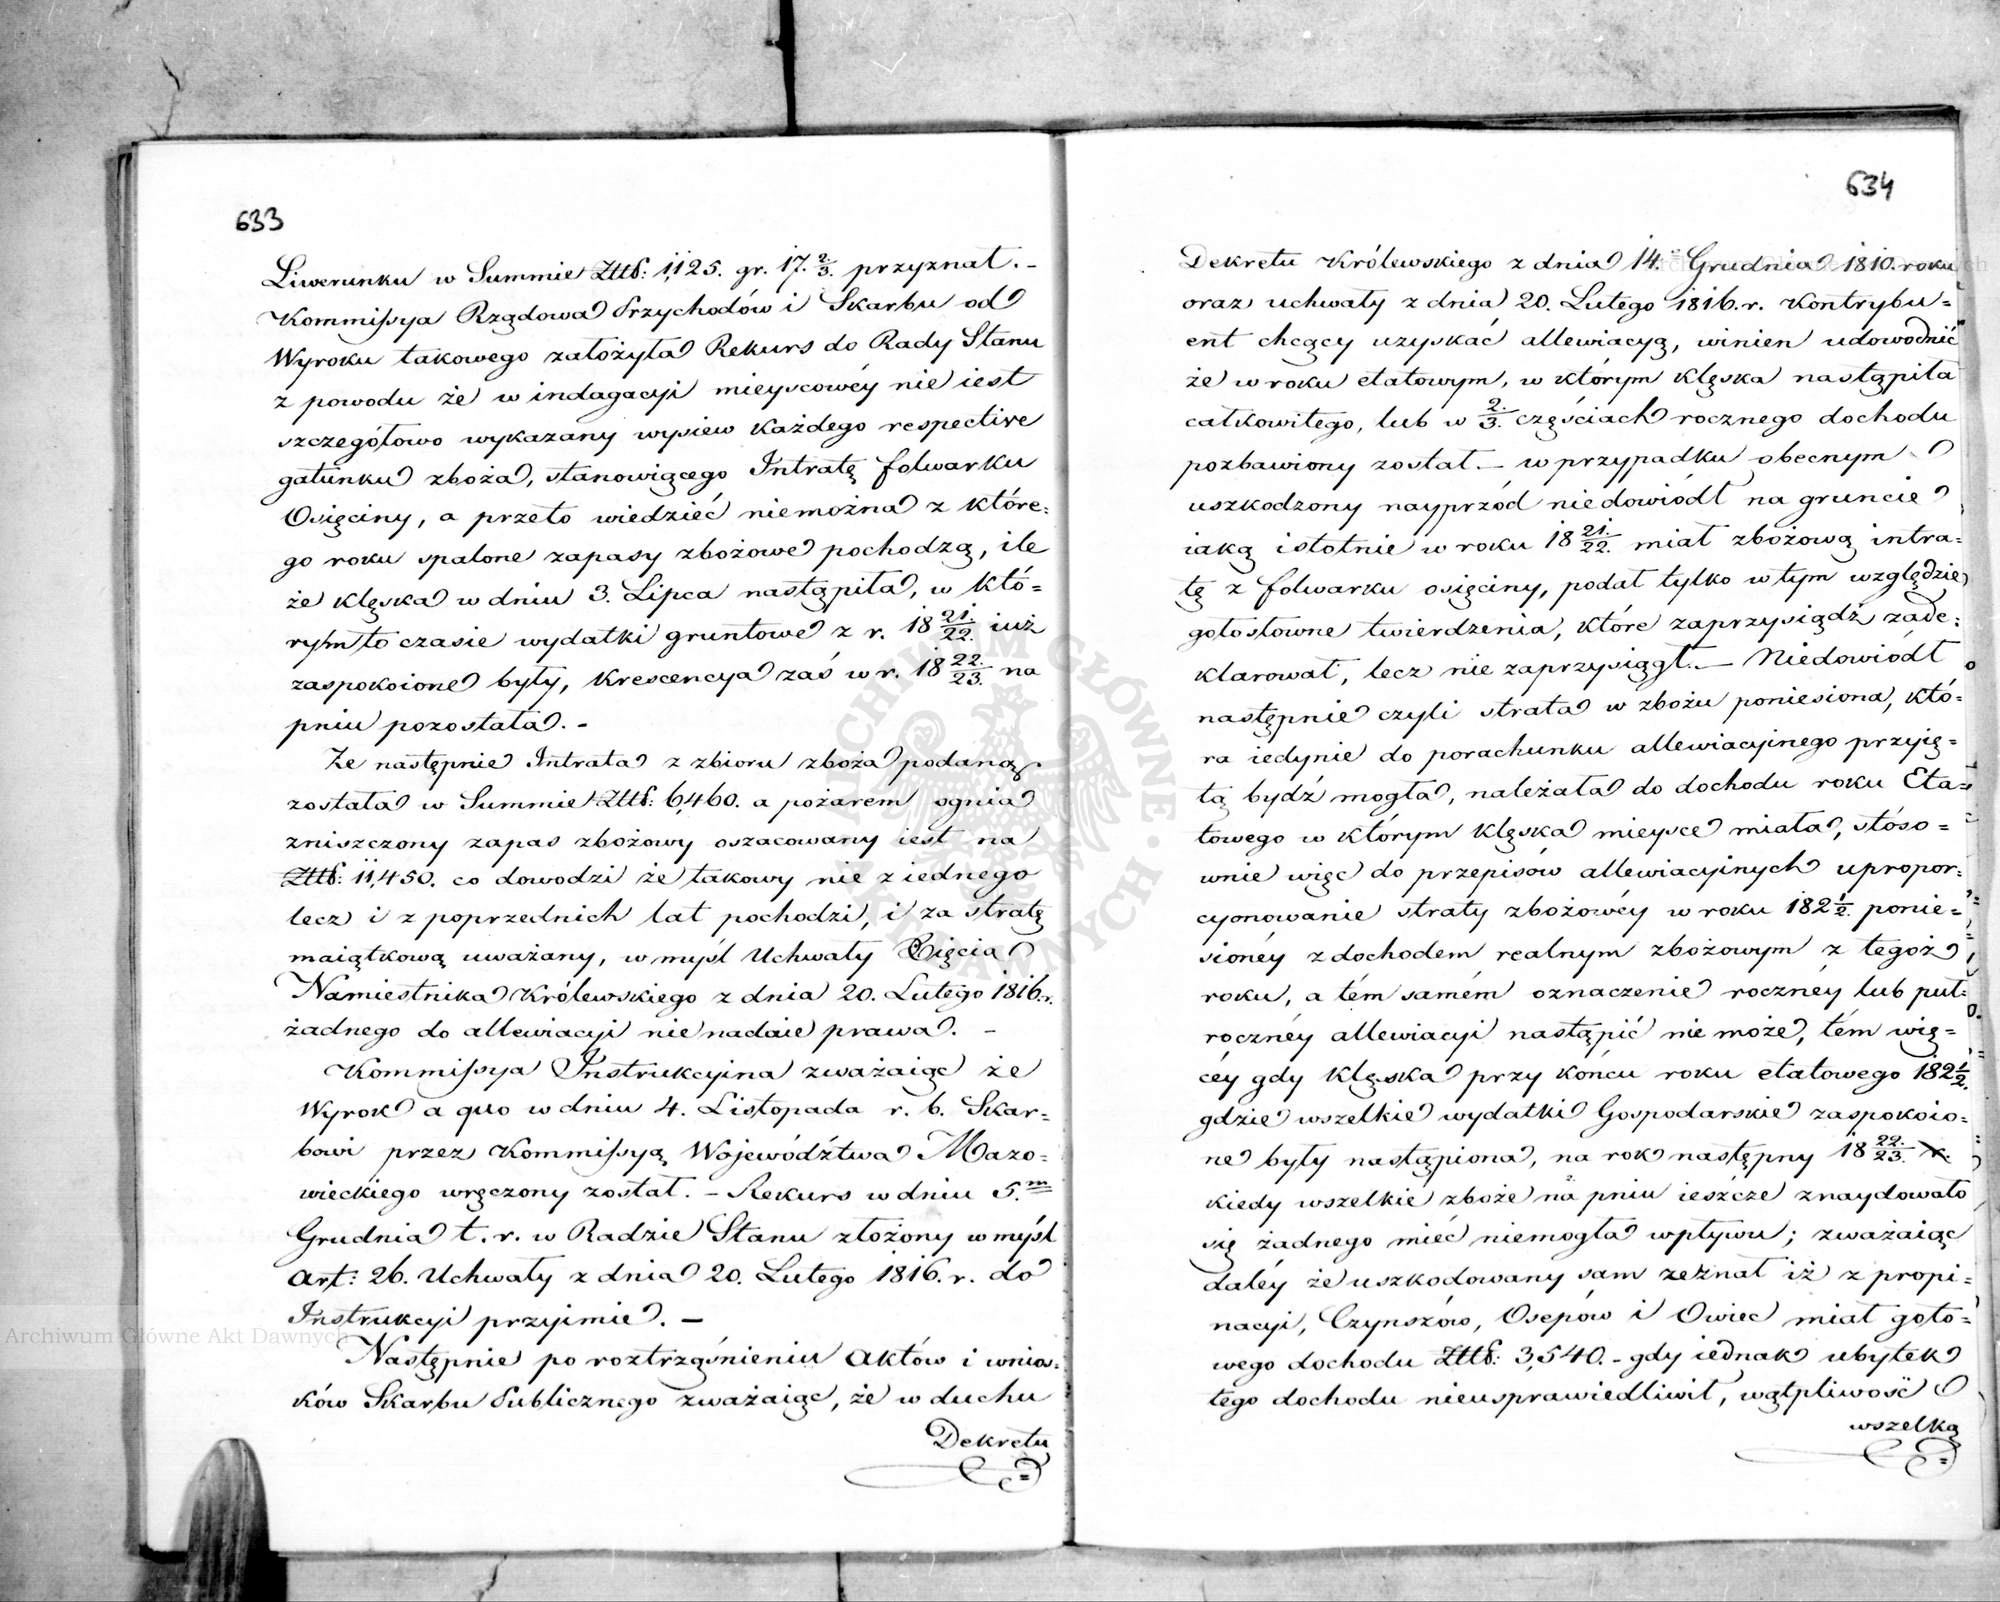 633
Liwerunku w Summie Złłß: 1,125. gr. 17. 2/3. przyznał. -
Kommissya Rządowa Przychodów i Skarbu od
Wyroku takowego założyła Rekurs do Rady Stanu
z powodu że w indagacyi mieyscowéy nie iest
szczegółowo wykazany wysiew każdego respective
gatunku zboża, stanowiącego Intratę folwarku
Osięciny, a przeto wiedzieć niemożna z które:
go roku spalone zapasy zbożowe pochodzą, ile
że klęska w dniu 3. Lipca nastąpiła, w któ=
rym to czasie wydatki gruntowe z r. 18 21./22. iuż
zaspokoione były, krescencya zaś w r. 18 22./23. na
pniu pozostała. -
Że następnie Intrata z zbioru zboża podaną
została w Summie Złłß: 6,460. a pożarem ognia
zniszczony zapas zbożowy oszacowany iest na
Złłß: 11,450. co dowodzi że takowy nie z iednego
lecz i z poprzednich lat pochodzi, i za stratę
maiątkową uważany, w myśl Uchwały Xięcia
Namiestnika Królewskiego z dnia 20. Lutego 1816.r.
żadnego do allewiacyi nie nadaie prawa. -
Kommissya Instrukcyina zważaiąc że
Wyrok a quo w dniu 4. Listopada r. b. Skar=
bowi przez Kommissyą Województwa Mazo=
wieckiego wręczony został. - Rekurs w dniu 5.m
Grudnia t. r. w Radzie Stanu złożony w myśl
Art: 26. Uchwały z dnia 20. Lutego 1816. r. do
Instrukcyi przyimie. -
Następnie po roztrząśnieniu Aktów i wnios=
ków Skarbu Publicznego zważaiąc, że w duchu
Dekretu
634
Dekretu Królewskiego z dnia 14.e Grudnia 1810. roku
oraz uchwały z dnia 20. Lutego 1816. r. Kontrybu=
ent chcący uzyskać allewiacyą, winien udowodnić
że w roku etatowym, w którym klęska nastąpiła
całkowitego, lub w 2/3. częściach rocznego dochodu
pozbawiony został. - w przypadku obecnym
uszkodzony nayprzód niedowiódł na gruncie
iaką istotnie w roku 18 21./22. miał zbożową intra=
tę z folwarku osięciny, podał tylko w tym względzie
gołosłowne twierdzenia, które zaprzysiądz zade:
klarował, lecz nie zaprzysiągł. - Niedowiódł
następnie czyli strata w zbożu poniesiona, któ=
ra iedynie do porachunku allewiacyinego przyię=
tą bydź mogła, należała do dochodu roku Eta=
towego w którym klęska mieysce miała, stóso=
wnie więc do przepisów allewiacyinych upropor:
cyonowanie straty zbożowéy w roku 182 1/2. ponie=
sionéy z dochodem realnym zbożowym z tegoż
roku, a tém samém oznaczenie rocznéy lub pół:
rocznéy allewiacyi nastąpić nie może, tém wię=
céy gdy klęska przy końcu roku etatowego 182 1/2.
gdzie wszelkie wydatki Gospodarskie zaspokoio=
ne były nastąpiona, na rok następny 18 22./23. r.
kiedy wszelkie zboże na pniu ieszcze znaydowało
się żadnego mieć niemogła wpływu; zważaiąc
daléy że uszkodowany sam zeznał iż z propi=
nacyi, Czynszów, Osepów i Owiec miał goto=
wego dochodu Złłß: 3,540. - gdy iednak ubytek
tego dochodu nieusprawiedliwił, wątpliwość
wszelką
Archiwum Główne Akt Dawnych
ARCHIWUM GŁÓWNE AKT DAWNYCH